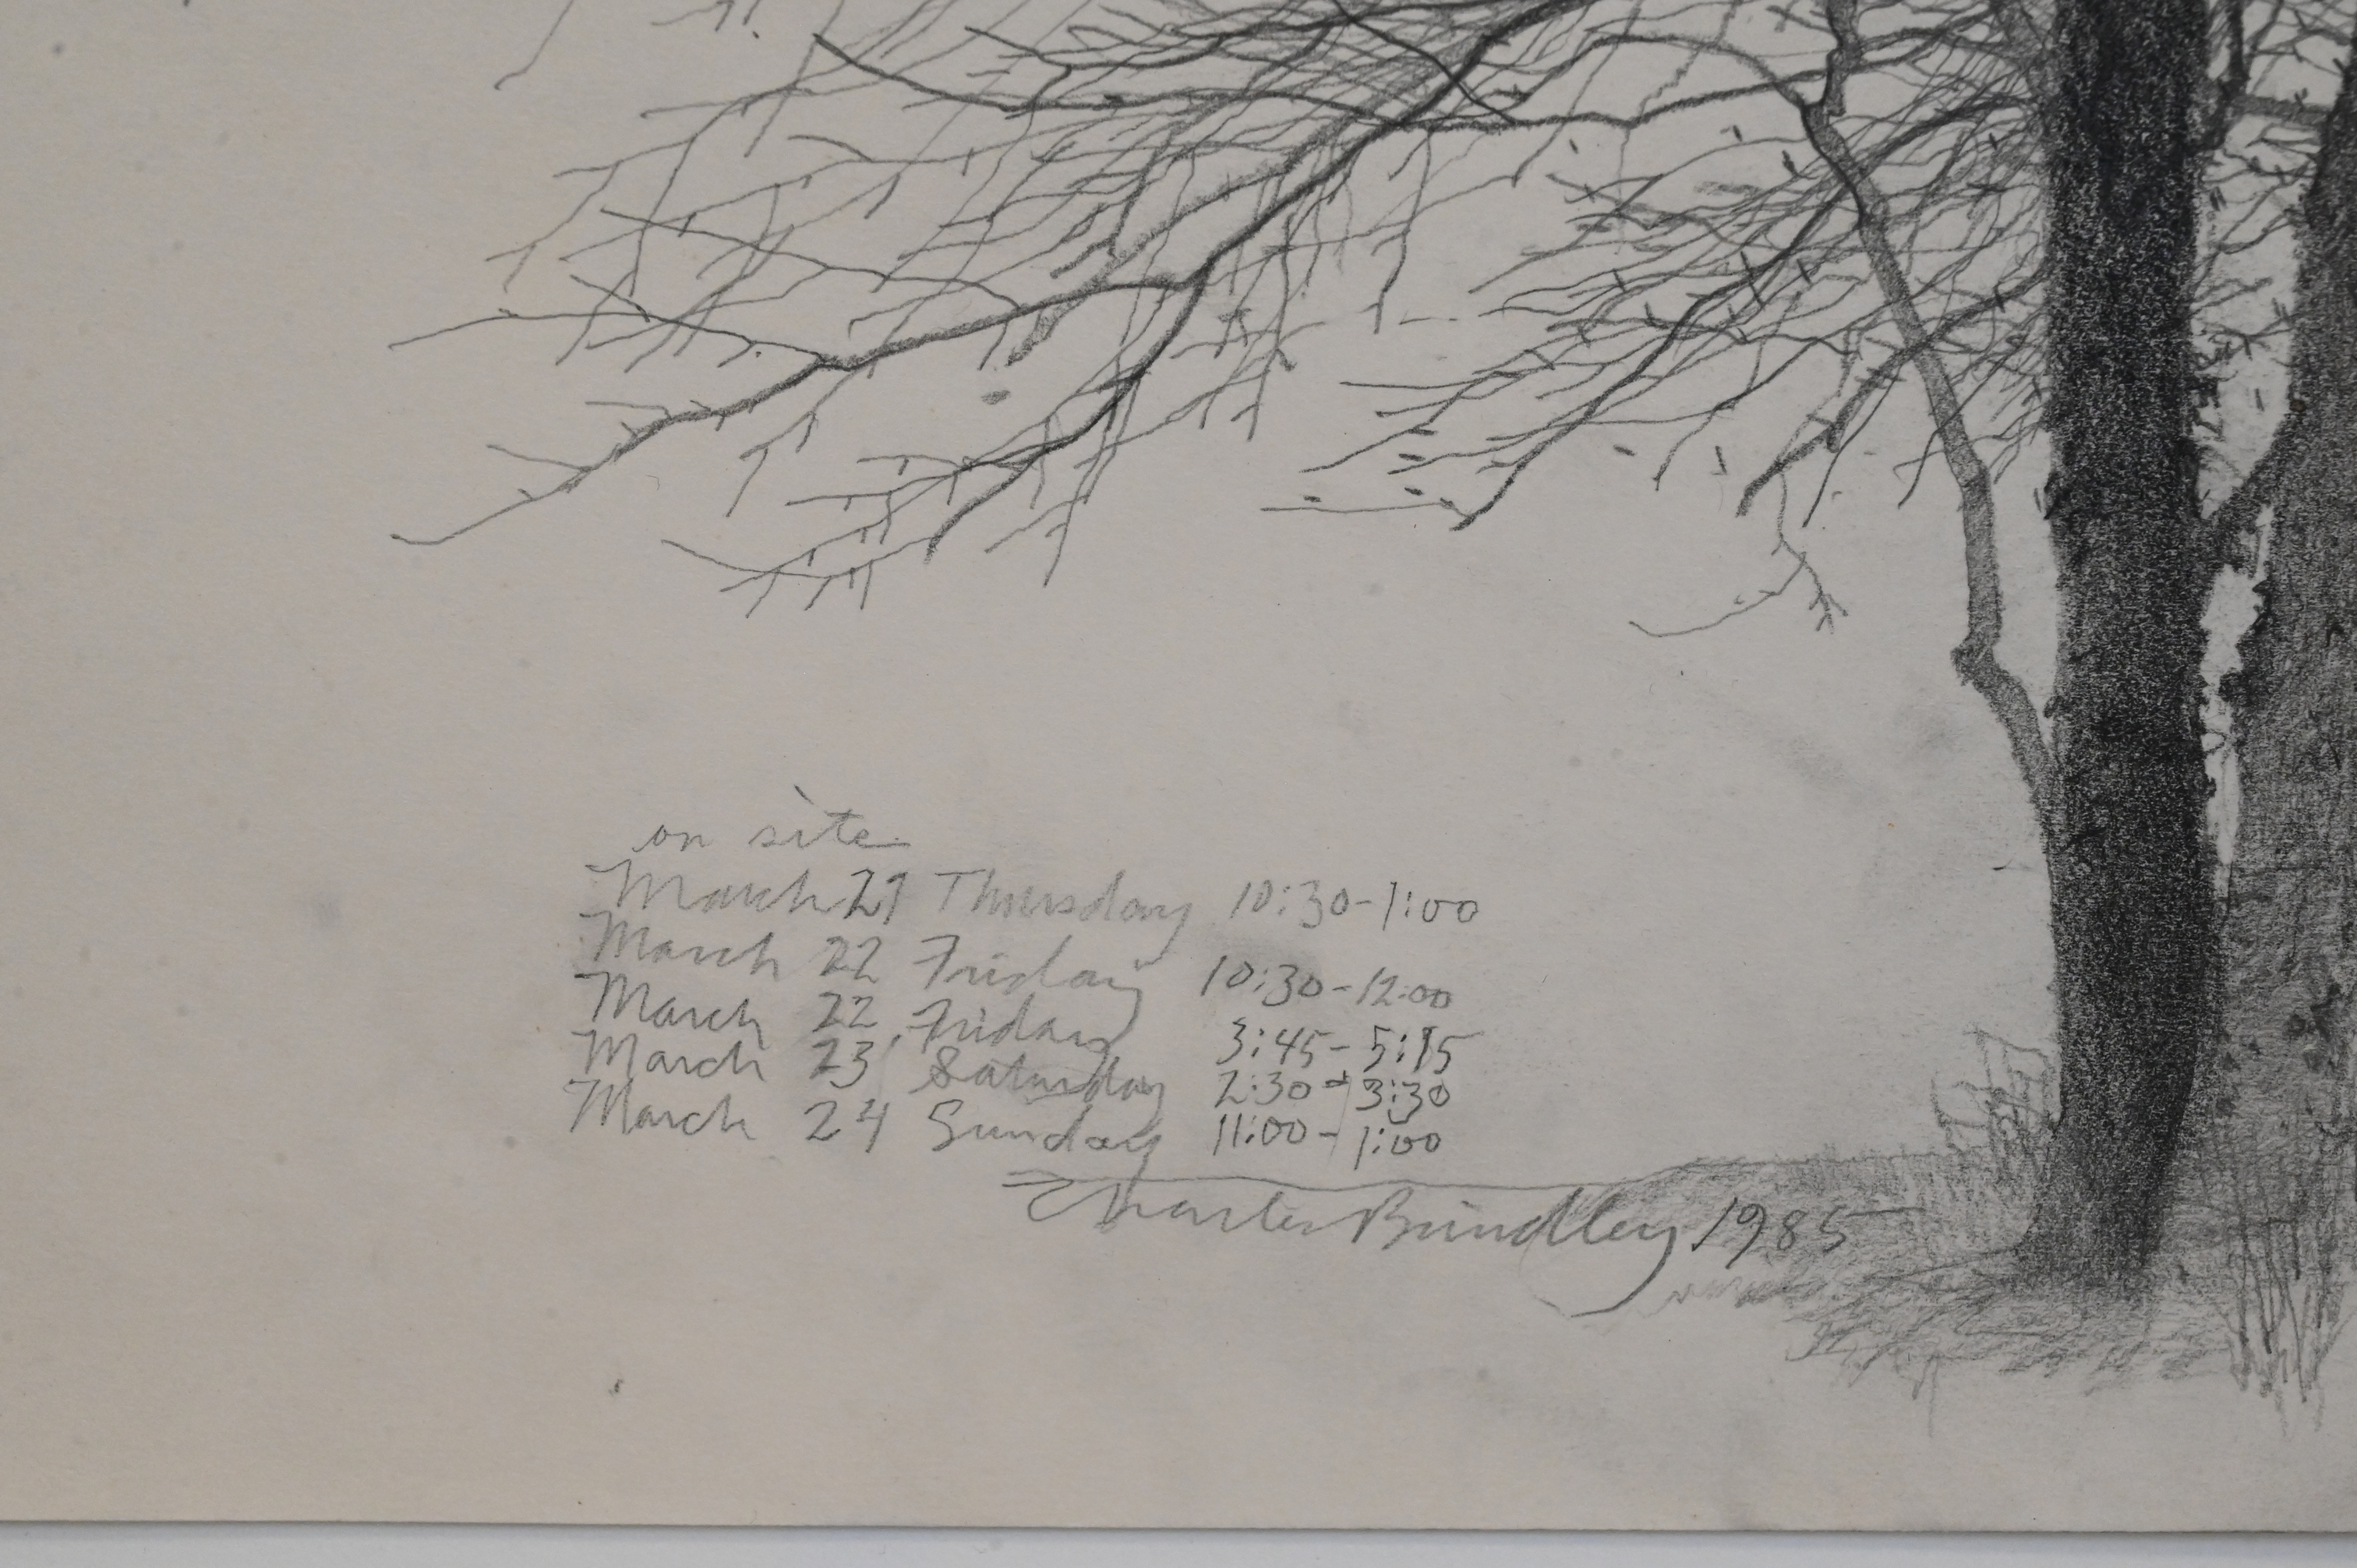 on site
March 21 Thursday 10:30-1:00
March 22 Friday 10:30-12:00
March 22 Friday 3:45-5:15
March 23 Saturday 2:30-3:30
March 24 Sunday 11:00-1:00
Charles Brindley 1985